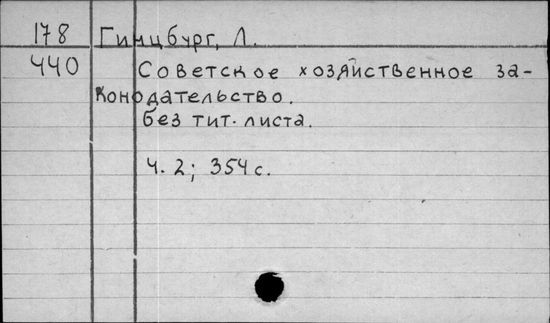 178 Гинцбург, Л.
440 Советское хозяйственное за-
конодательство.
без тит. листа.
ч. 2; 354 с.